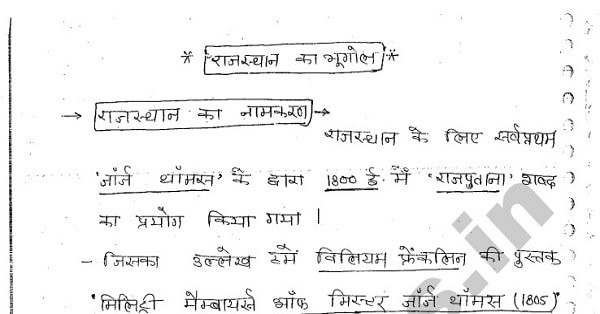 * राजस्थान का भूगोल *
→ राजस्थान का नामकरण →
राजस्थान के लिए सर्वप्रथम
'जॉर्ज थॉमस' के द्वारा 1800 ई. में 'राजपुताना' शब्द
का प्रयोग किया गया |
- जिसका उल्लेख हमें विलियम फ्रेंकलिन की पुस्तक
'मिलिट्री मैम्बायर्स ऑफ मिस्टर जॉर्ज थॉमस (1805)'
s.in